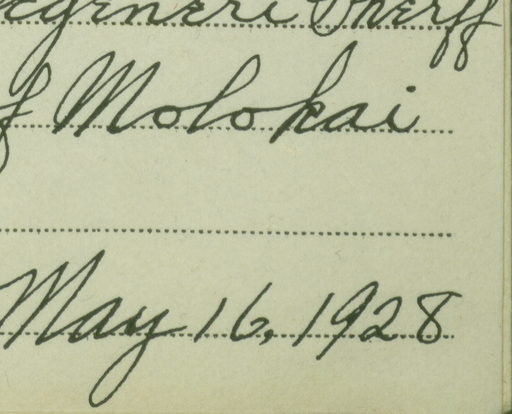 Sheriff
of Molokai
May 16, 1928